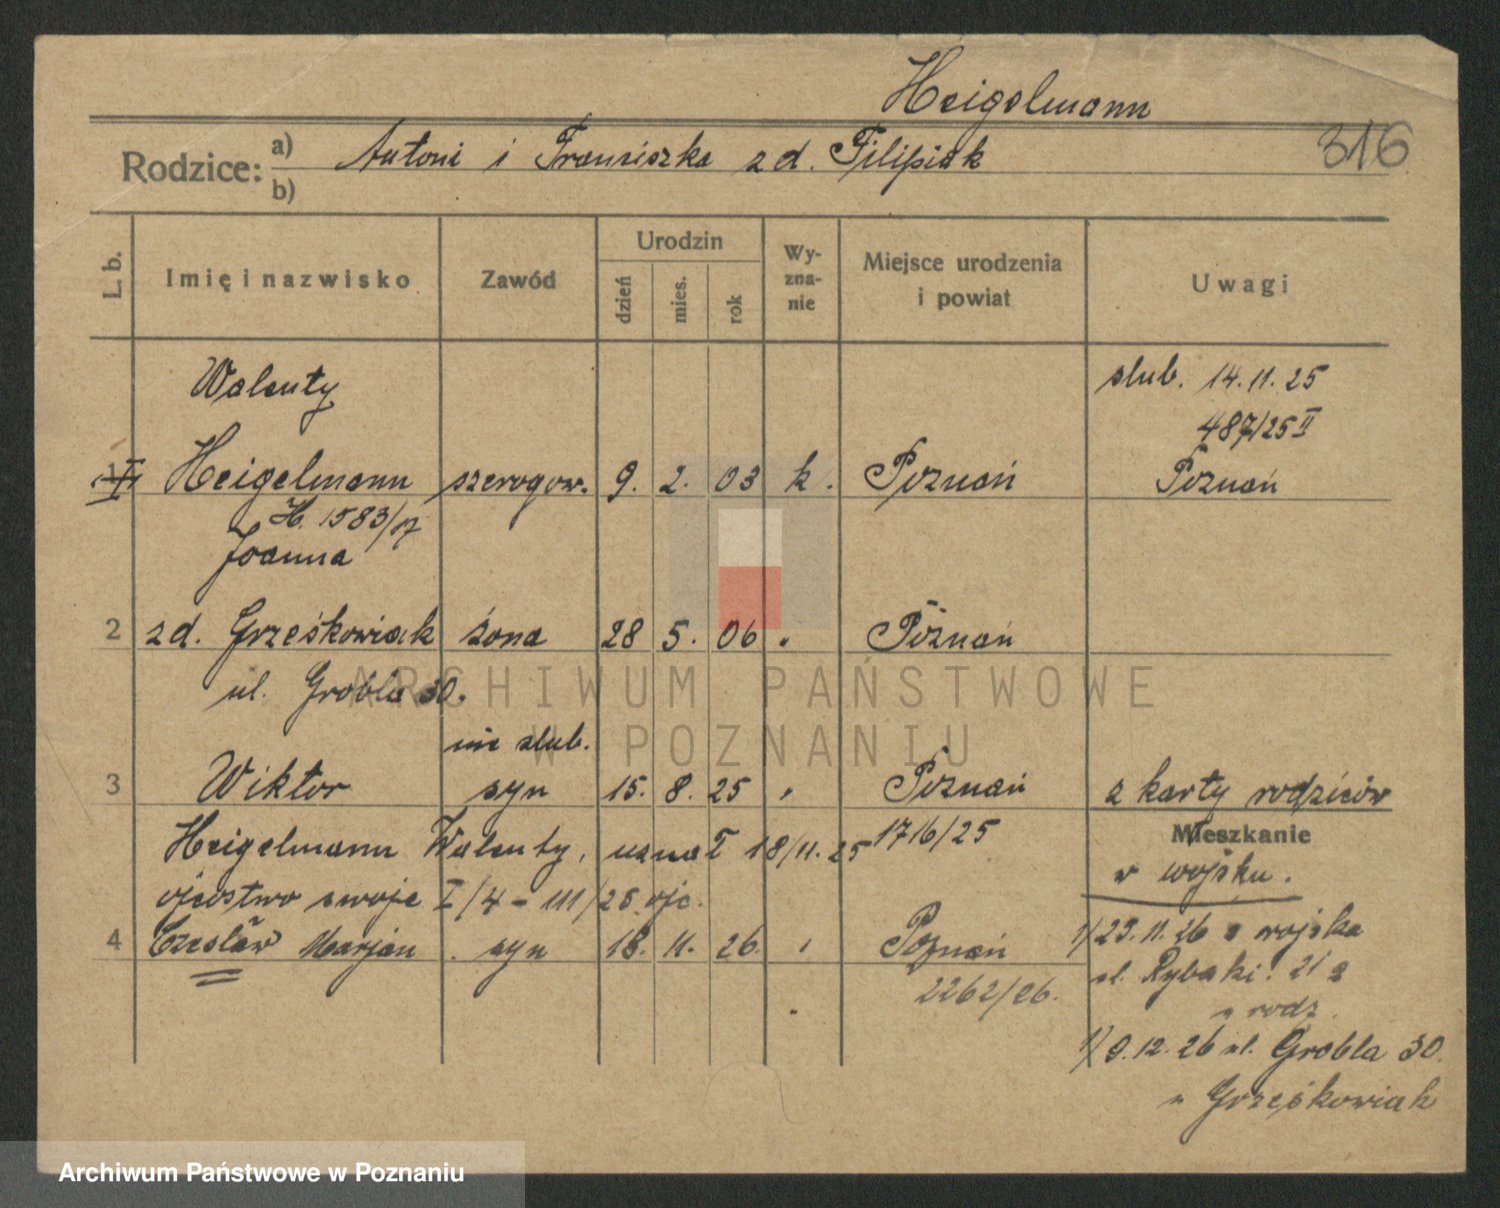 Heigelmann
316
Rodzice: a) Antoni i Franciszka zd. Filipiak
b)
L. b. Imię i nazwisko Zawód Urodzin dzień mies. rok Wy-zna-nie Miejsce urodzenia i powiat Uwagi
Walenty ślub. 14.11.25
487/25 II
1 Heigelmann szeregow. 9. 2. 03 k. Poznań Poznań
H. 1583/17
Joanna
2 zd. Grześkowiak żona 28 5. 06 " Poznań
ul. Grobla 30.
nie ślub.
3 Wiktor syn 15. 8. 25 " Poznań z karty rodziców
Heigelmann Walenty, uznał 18/11. 25 1716/25 Mieszkanie
ojcostwo swoje I/4 - III/25 ojc. w wojsku.
4 Czesław Marjan syn 18. 11. 26. " Poznań 1/ 23. 11. 26 z wojska
2262/26. ul. Rybaki 21
u rodz.
1/ 9. 12. 26 ul. Grobla 30.
u Grześkowiak
ARCHIWUM PAŃSTWOWE
W POZNANIU
Archiwum Państwowe w Poznaniu